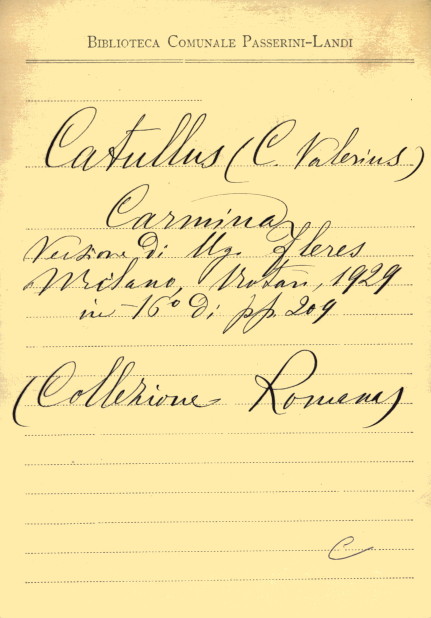 BIBLIOTECA COMUNALE PASSERINI-LANDI
Catullus (C. Valerius)
Carmina
Versione di Ug. Fleres
Milano, Notari, 1929
in-16° di pp. 209
(Collezione Romana)
C